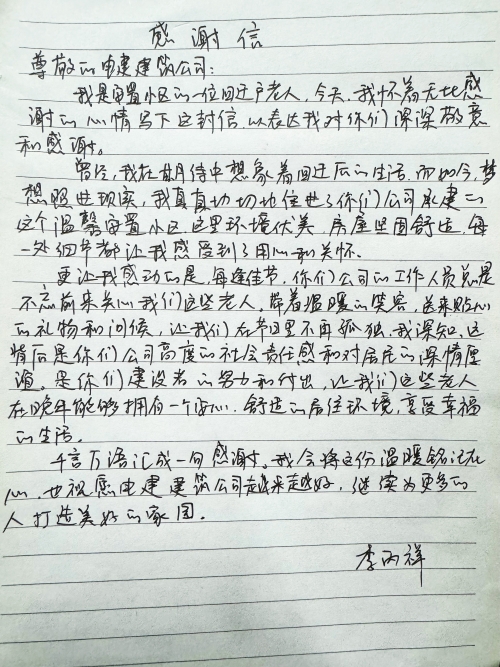 感谢信
尊敬的电建建筑公司：
我是安置小区的一位回迁户老人，今天，我怀着无比感
谢的心情写下这封信，以表达我对你们深深敬意
和感谢。
曾经，我在期待中想象着回迁后的生活，而如今，梦
想照进现实，我真真切切地住进了你们公司承建的
这个温馨安置小区，这里环境优美，房屋坚固舒适，每
一处细节都让我感受到了用心和关怀。
更让我感动的是，每逢佳节，你们公司的工作人员总是
不忘前来关心我们这些老人。带着温暖的笑容，送来贴心
的礼物和问候，让我们在节日里不再孤独。我深知，这
背后是你们公司高度的社会责任感和对居民的深情厚
谊。是你们建设者的努力和付出，让我们这些老人
在晚年能够拥有一个安心、舒适的居住环境，享受幸福
的生活。
千言万语汇成一句感谢。我会将这份温暖铭记在
心，也祝愿电建建筑公司越来越好，继续为更多的
人打造美好的家园。
李丙祥